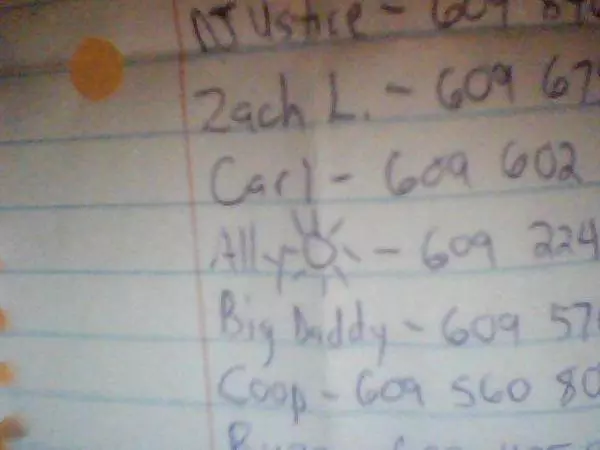 NJUstice - 609
Zach L. - 609 67
Carl - 609 602
Ally - 609 224
Big Daddy - 609 57
Coop - 609 560 80